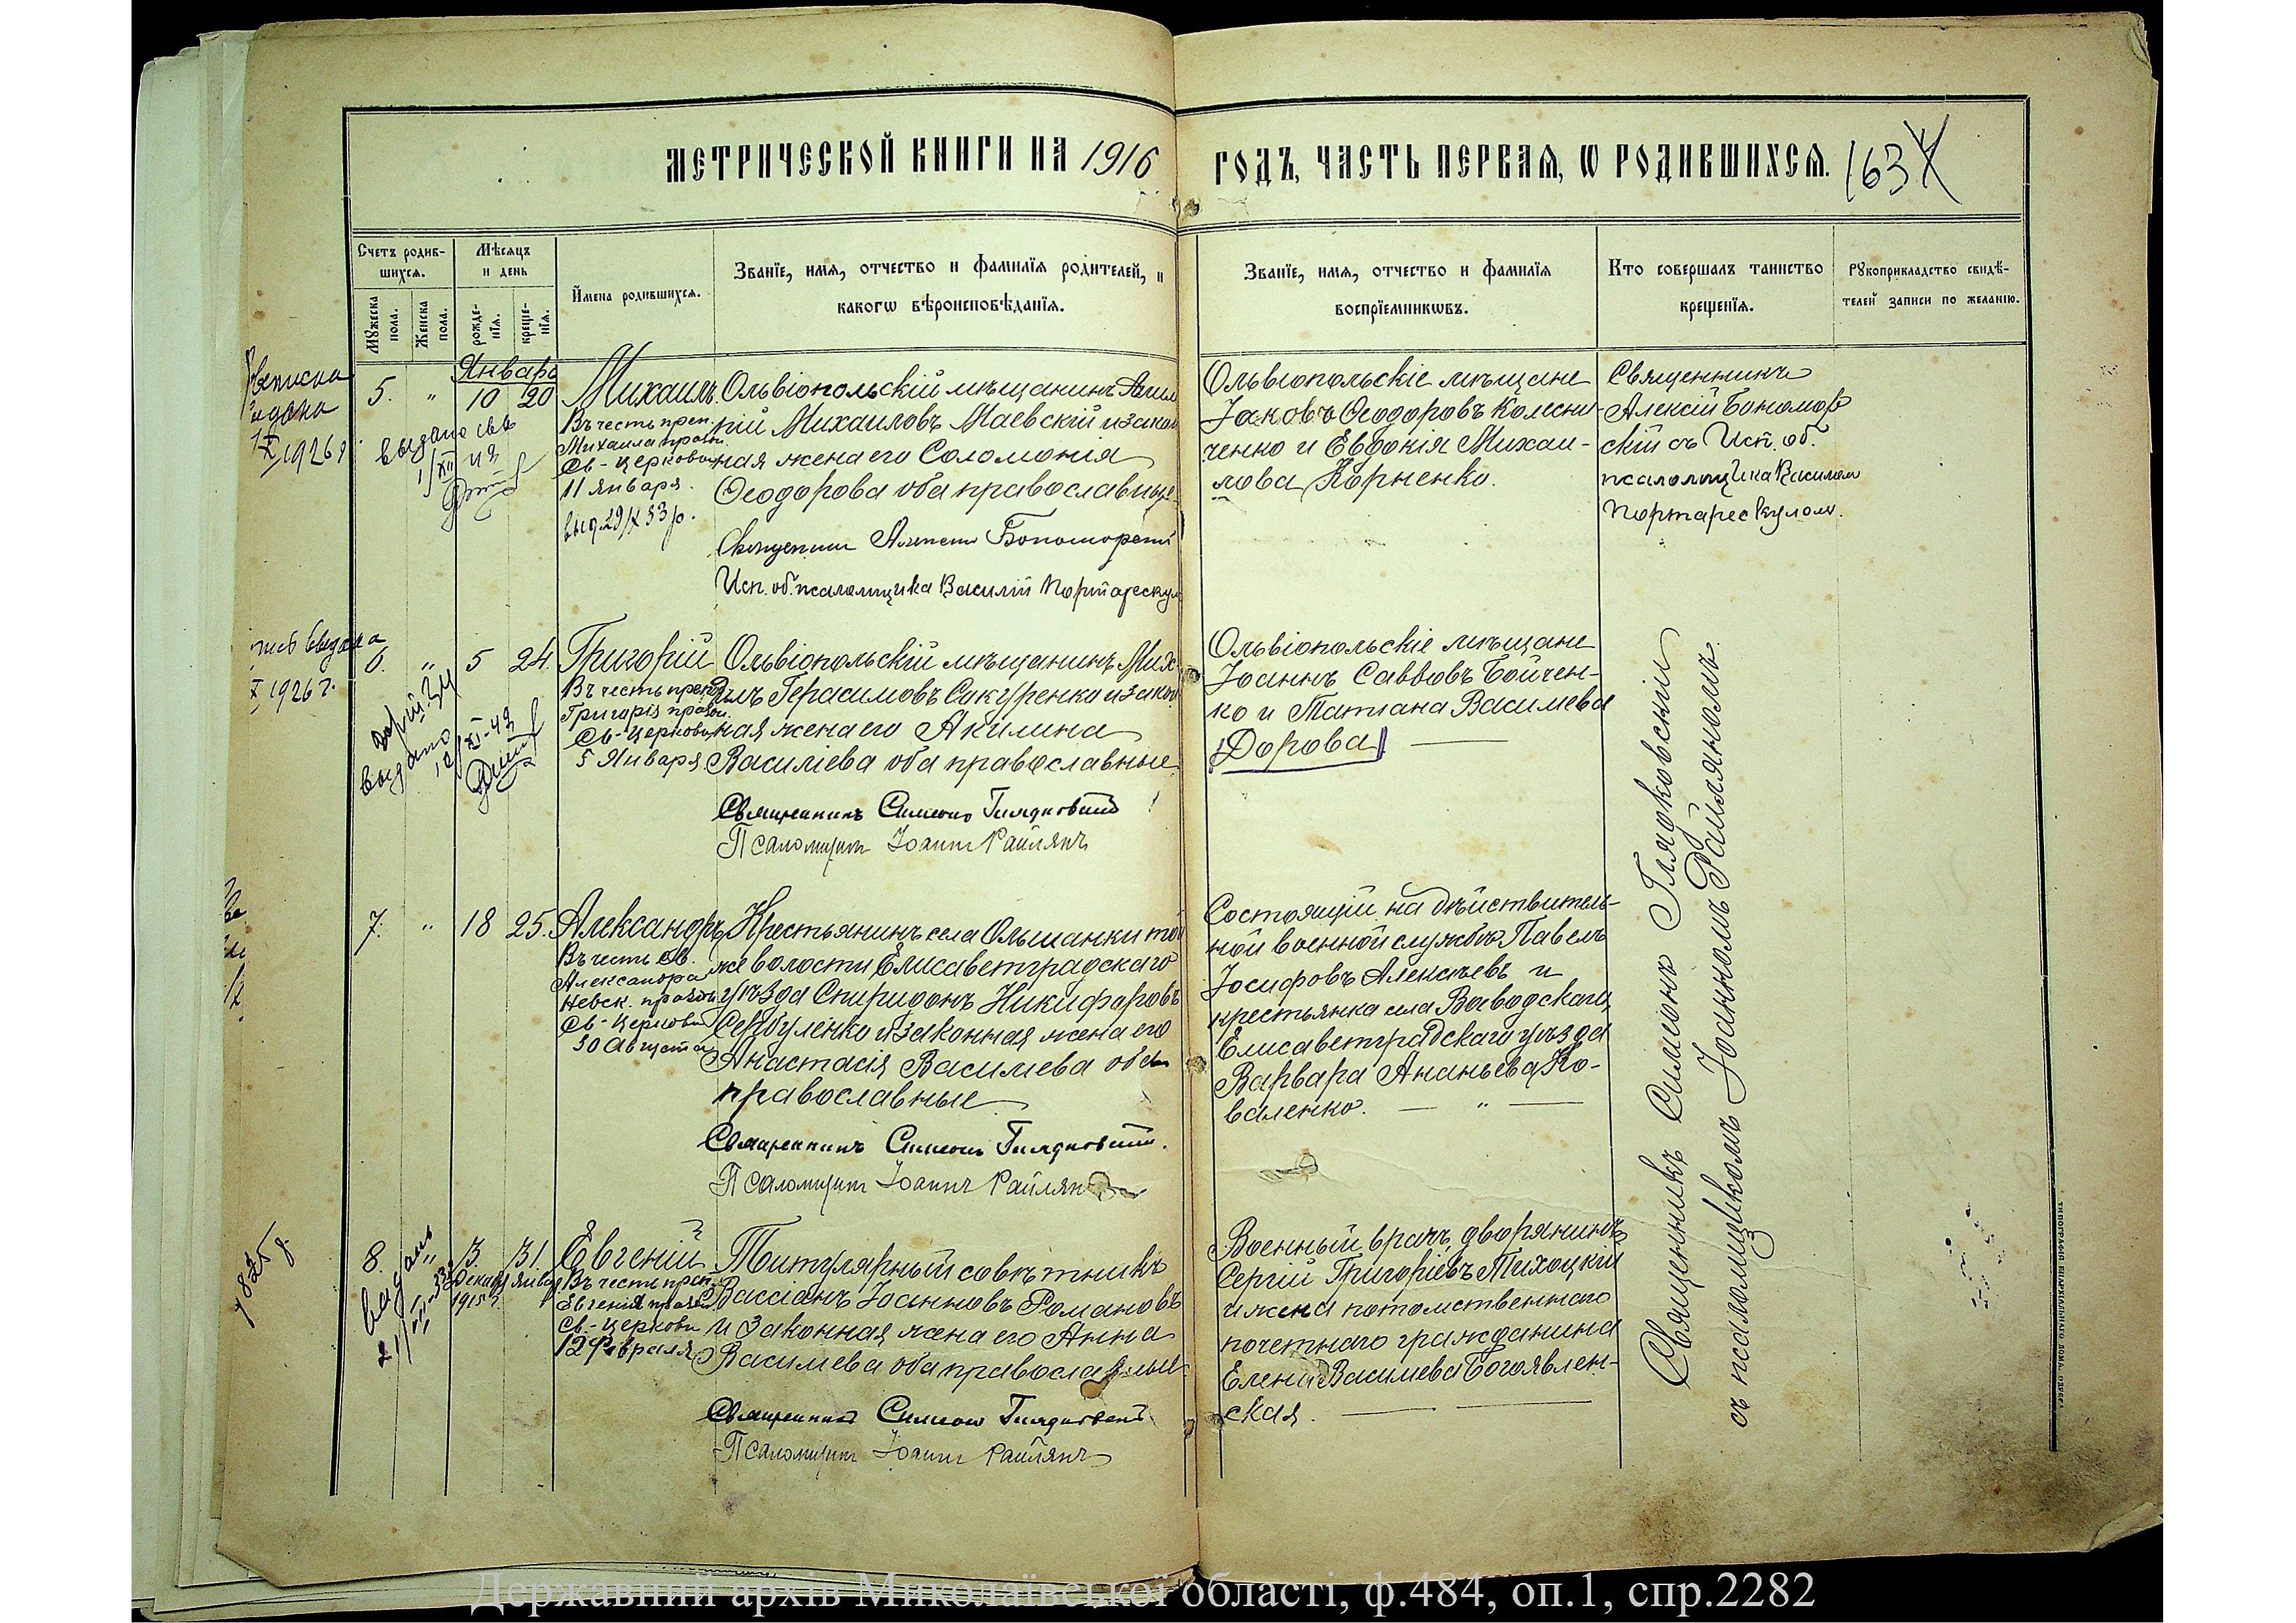 МЕТРИЧЕСКОЙ КНИГИ НА 1916 ГОДЪ, ЧАСТЬ ПЕРВАЯ, Ѡ РОДИВШИХСЯ. 163
Счетъ родив-
шихся.
Мужеска
пола.
Женска
пола.
Мѣсяцъ
и день
рожде-
нїя.
креще-
нїя.
Имена родившихся.
Званїе, имя, отчество и фамилїя родителей, и
какогѡ вѣроисповѣданїя.
Званїе, имя, отчество и фамилїя
воспрїемникѡвъ.
Кто совершалъ таинство
крещенїя.
Рукоприкладство свидѣ-
телей записи по желанїю.
выдана
1926 г.
Январь
5. " 10 20
выдано
Михаилъ.
Въ честь преп.
Михаила праздн.
Св-Церковью
11 Января.
выд. 29/X 33 р.
Ольвіопольскій мѣщанинъ
Михаиловъ Маевскій и закон
ная жена его Соломонія
Ѳеодорова оба православные
Священникъ Алексій Бономорскій
Исп. об. псаломщика Василій Портарескул
Ольвіопольскіе мѣщане
Іаковъ Ѳеодоровъ Колесни-
ченко и Евдокія Михаи-
лова Корненко.
Священникъ
Алексій Бономор
скій съ Исп. об.
псаломщика Василіем
Портарескулом.
выдана
1926 г.
6. " 5 24.
выдано
Григорій
Въ честь преп.
Григорія праздн.
Св-Церковью
5 Января.
Ольвіопольскій мѣщанинъ Мих
илъ Герасимовъ Сокуренко и закон
ная жена его Акилина
Василіева оба православные.
Священникъ Симеонъ Глядковскій
Псаломщикъ Іоаннъ Райлянъ
Ольвіопольскіе мѣщане
Іоаннъ Саввовъ Бойчен-
ко и Татіана Васильева
Дорова
7. " 18 25.
Александръ
Въ честь Св.
Александра
Невск. праздн.
Св-Церковью
30 Августа
Крестьянинъ села Ольшанки той
же волости Елисаветградскаго
уѣзда Спиридонъ Никифоровъ
Сербуленко и законная жена его
Анастасія Васильева оба
православные
Священникъ Симеонъ Глядковскій.
Псаломщикъ Іоаннъ Райлянъ
Состоящій на дѣйствитель-
ной военной службѣ Павелъ
Іосифовъ Алексѣевъ и
крестьянка села
Елисаветградскаго уѣзда
Варвара Ананьева Ко-
валенко. — " —
1825 г.
8. " 3. 31.
Декабр. Январ
1915 г.
выдано
Евгеній
Въ честь преп.
Евгенія праздн.
Св-Церковью
12 Февраля
Титулярный совѣтникъ
Вассіанъ Іоанновъ Романовъ
и законная жена его Анна
Васильева оба православные
Священникъ Симеонъ Глядковскій
Псаломщикъ Іоаннъ Райлянъ
Военный врачъ, дворянинъ
Сергій Григоріевъ Тихоцкій
и жена потомственнаго
почетнаго гражданина
Елена Васильева Богоявлен-
ская.
Священникъ Симеонъ Глядковскій
съ псаломщикомъ Іоанномъ Райляномъ.
ТИПОГРАФІЯ ЕПАРХІАЛЬНАГО ДОМА, ОДЕССА
Державний архів Миколаївської області, ф.484, оп.1, спр.2282